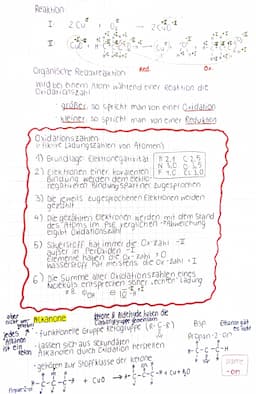 Reaktion
I: 2 Cu + O₂ → 2 CuO
II:
Organische Redoxreaktion Red. Ox.
Wird bei einem Atom während einer Reaktion die
Oxidationszahl
größer, so spricht man von einer Oxidation
kleiner, so spricht man von einer Reduktion
Oxidationszahlen
(fiktive Ladungszahlen von Atomen)
1) Grundlage: Elektronegativität
H 2,1 C 2,5
N 3,0 O 3,5
F 4,0 Cl 3,0
2) Elektronen einer kovalenten
Bindung werden dem elektro-
negativeren Bindungspartner zugesprochen
3) Die jeweils zugesprochenen Elektronen werden
gezählt
4) Die gezählten Elektronen werden mit dem Stand
des Atoms im PSE verglichen → Abweichung
ergibt Oxidationszahl
5) Sauerstoff hat immer die Ox-zahl -II
außer in Peroxiden -I
Elemente haben die Ox-zahl ±0
Wasserstoff hat meistens die Ox-zahl +I
6) Die Summe aller Oxidationszahlen eines
Moleküls entsprechen seiner "echten" Ladung
z.B.
aber
nicht
jedes
Alkanon
ist ein
Keton
Alkanone
Ketone & Aldehyde haben die
Carbonylgruppe gemeinsam
- funktionelle Gruppe Ketogruppe (R-C-R')
- lassen sich aus sekundären
Alkanolen durch Oxidation herstellen
- gehören zur Stoffklasse der Ketone
Bsp.
Propan-2-on
Ethanon gibt
es nicht
Name
-on
Propan-2-ol
+ CuO → + Cu + H₂O